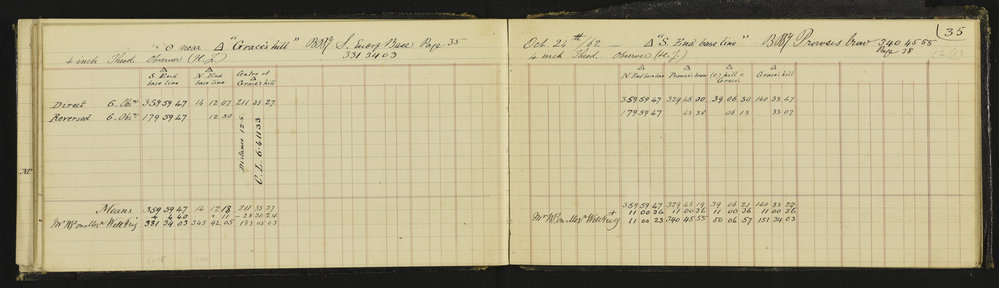 "⊙ near △ "Grace's hill" BRG S. End of Base Page 35
331 34 03
4 inch Theod. Observer (H.J.)
△ S. End base line △ N. End base line Centre of △ Grace's hill
Direct 6-Obsns 359 59 47 14 12 07 211 35 27
Reversed 6-Obsns 179 59 47 12 30
Distance 12.5
C.L. 6.4 11 33
Means 359 59 47 14 12 18 211 35 27
331 34 03 345 42 05 183 05 03
35
Oct 24th /62 — △ "S. End base line" BRG Prowses brow 340 45 55
Page 28
4 inch Theod. Observer (H.J.)
△ N End base line △ Prowse's brow △ (c) hill c Grace's △ Grace's hill
359 59 47 329 45 00 39 06 30 140 33 47
179 59 47 43 38 06 13 33 07
359 59 47 329 45 19 39 06 21 140 33 27
11 00 36 11 00 36 11 00 36 11 00 36
11 00 23 340 45 55 50 06 57 151 34 03